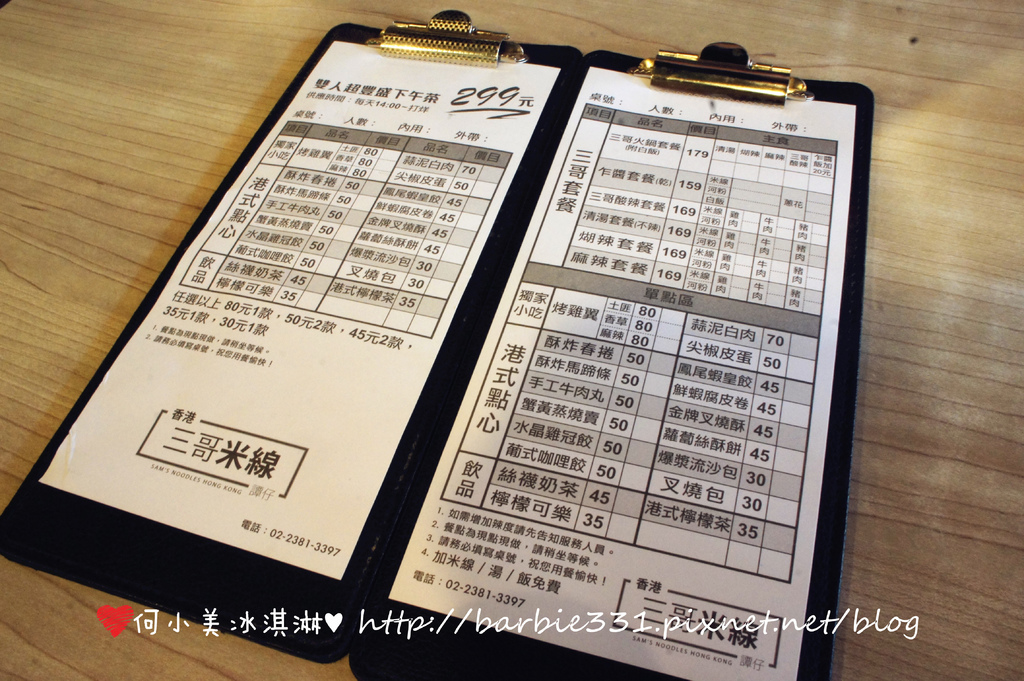 雙人超豐盛下午茶 299元
供應時間：每天14:00~打烊
桌號： 人數： 內用： 外帶：
項目 品名 價目 品名 價目
獨家小吃 烤雞翼 土匪 80 蒜泥白肉 70
香草 80
麻辣 80 尖椒皮蛋 50
港式點心 酥炸春捲 50 鳳尾蝦皇餃 45
酥炸馬蹄條 50 鮮蝦腐皮卷 45
手工牛肉丸 50 金牌叉燒酥 45
蟹黃蒸燒賣 50 蘿蔔絲酥餅 45
水晶雞冠餃 50 爆漿流沙包 30
葡式咖哩餃 50 叉燒包 30
飲品 絲襪奶茶 45 港式檸檬茶 35
檸檬可樂 35
任選以上 80元1款，50元2款，45元2款，
35元1款，30元1款
1. 餐點為現點現做，請稍坐等候。
2. 請務必填寫桌號，祝您用餐愉快！
香港
三哥米線
SAM'S NOODLES HONG KONG 譚仔
電話：02-2381-3397
桌號： 人數： 內用： 外帶：
項目 品名 價目 主食
三哥套餐 三哥火鍋套餐 (附白飯) 179 清湯 煳辣 麻辣 三哥酸辣 乍醬飯加20元
乍醬套餐(乾) 159 米線 河粉 白飯 蔥花
三哥酸辣套餐 169 米線 河粉 雞肉 牛肉 豬肉
清湯套餐(不辣) 169 米線 河粉 雞肉 牛肉 豬肉
煳辣套餐 169 米線 河粉 雞肉 牛肉 豬肉
麻辣套餐 169 米線 河粉 雞肉 牛肉 豬肉
單點區
獨家小吃 烤雞翼 土匪 80 蒜泥白肉 70
香草 80
麻辣 80 尖椒皮蛋 50
港式點心 酥炸春捲 50 鳳尾蝦皇餃 45
酥炸馬蹄條 50 鮮蝦腐皮卷 45
手工牛肉丸 50 金牌叉燒酥 45
蟹黃蒸燒賣 50 蘿蔔絲酥餅 45
水晶雞冠餃 50 爆漿流沙包 30
葡式咖哩餃 50 叉燒包 30
飲品 絲襪奶茶 45 港式檸檬茶 35
檸檬可樂 35
1. 如需增加辣度請先告知服務人員。
2. 餐點為現點現做，請稍坐等候。
3. 請務必填寫桌號，祝您用餐愉快！
4. 加米線/湯/飯免費
電話：02-2381-3397
香港
三哥米線
SAM'S NOODLES HONG KONG 譚仔
❤何小美冰淇淋♥ http://barbie331.pixnet.net/blog